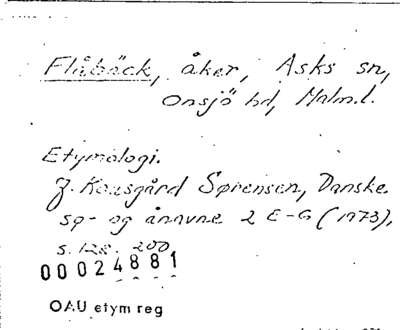 Flåbäck, åker, Asks sn,
Onsjö hd, Malm.l.
Etymologi.
J. Kousgård Sørensen, Danske
sø- og ånavne 2 E-G (1973),
s. 128. 200
00024881
OAU etym reg